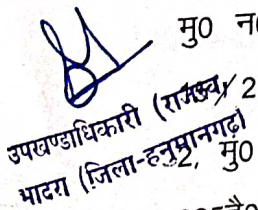 मु0 न
उपखण्डाधिकारी (राजस्व) 2
भादरा (जिला-हनुमानगढ़)
2, मु0